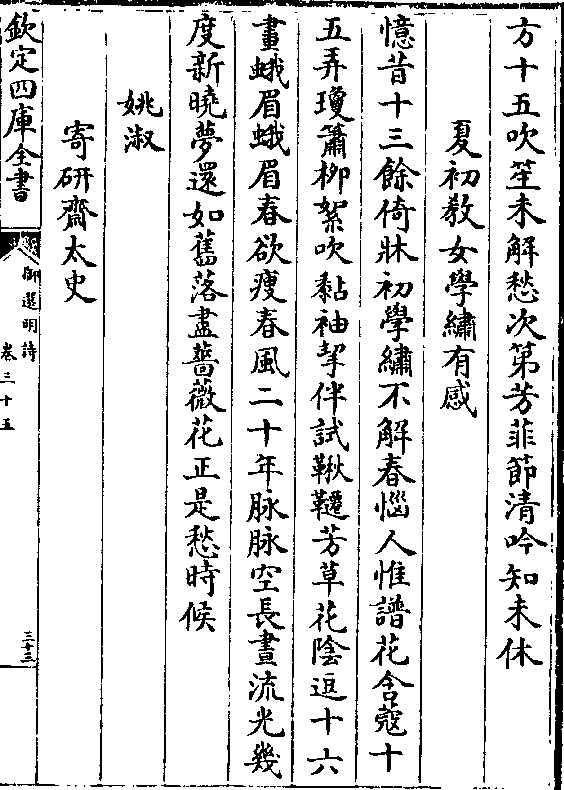 方十五吹笙未解愁次第芳菲節清吟知未休
夏初教女學繡有感
憶昔十三餘倚牀初學繡不解春惱人惟譜花含蔻十
五弄瓊簫柳絮吹黏袖挈伴試鞦韆芳草花陰逗十六
畫蛾眉蛾眉春欲瘦春風二十年脉脉空長晝流光幾
度新曉夢還如舊落盡薔薇花正是愁時候
姚淑
寄研齋太史
欽定四庫全書
御選明詩
卷三十五
三十三